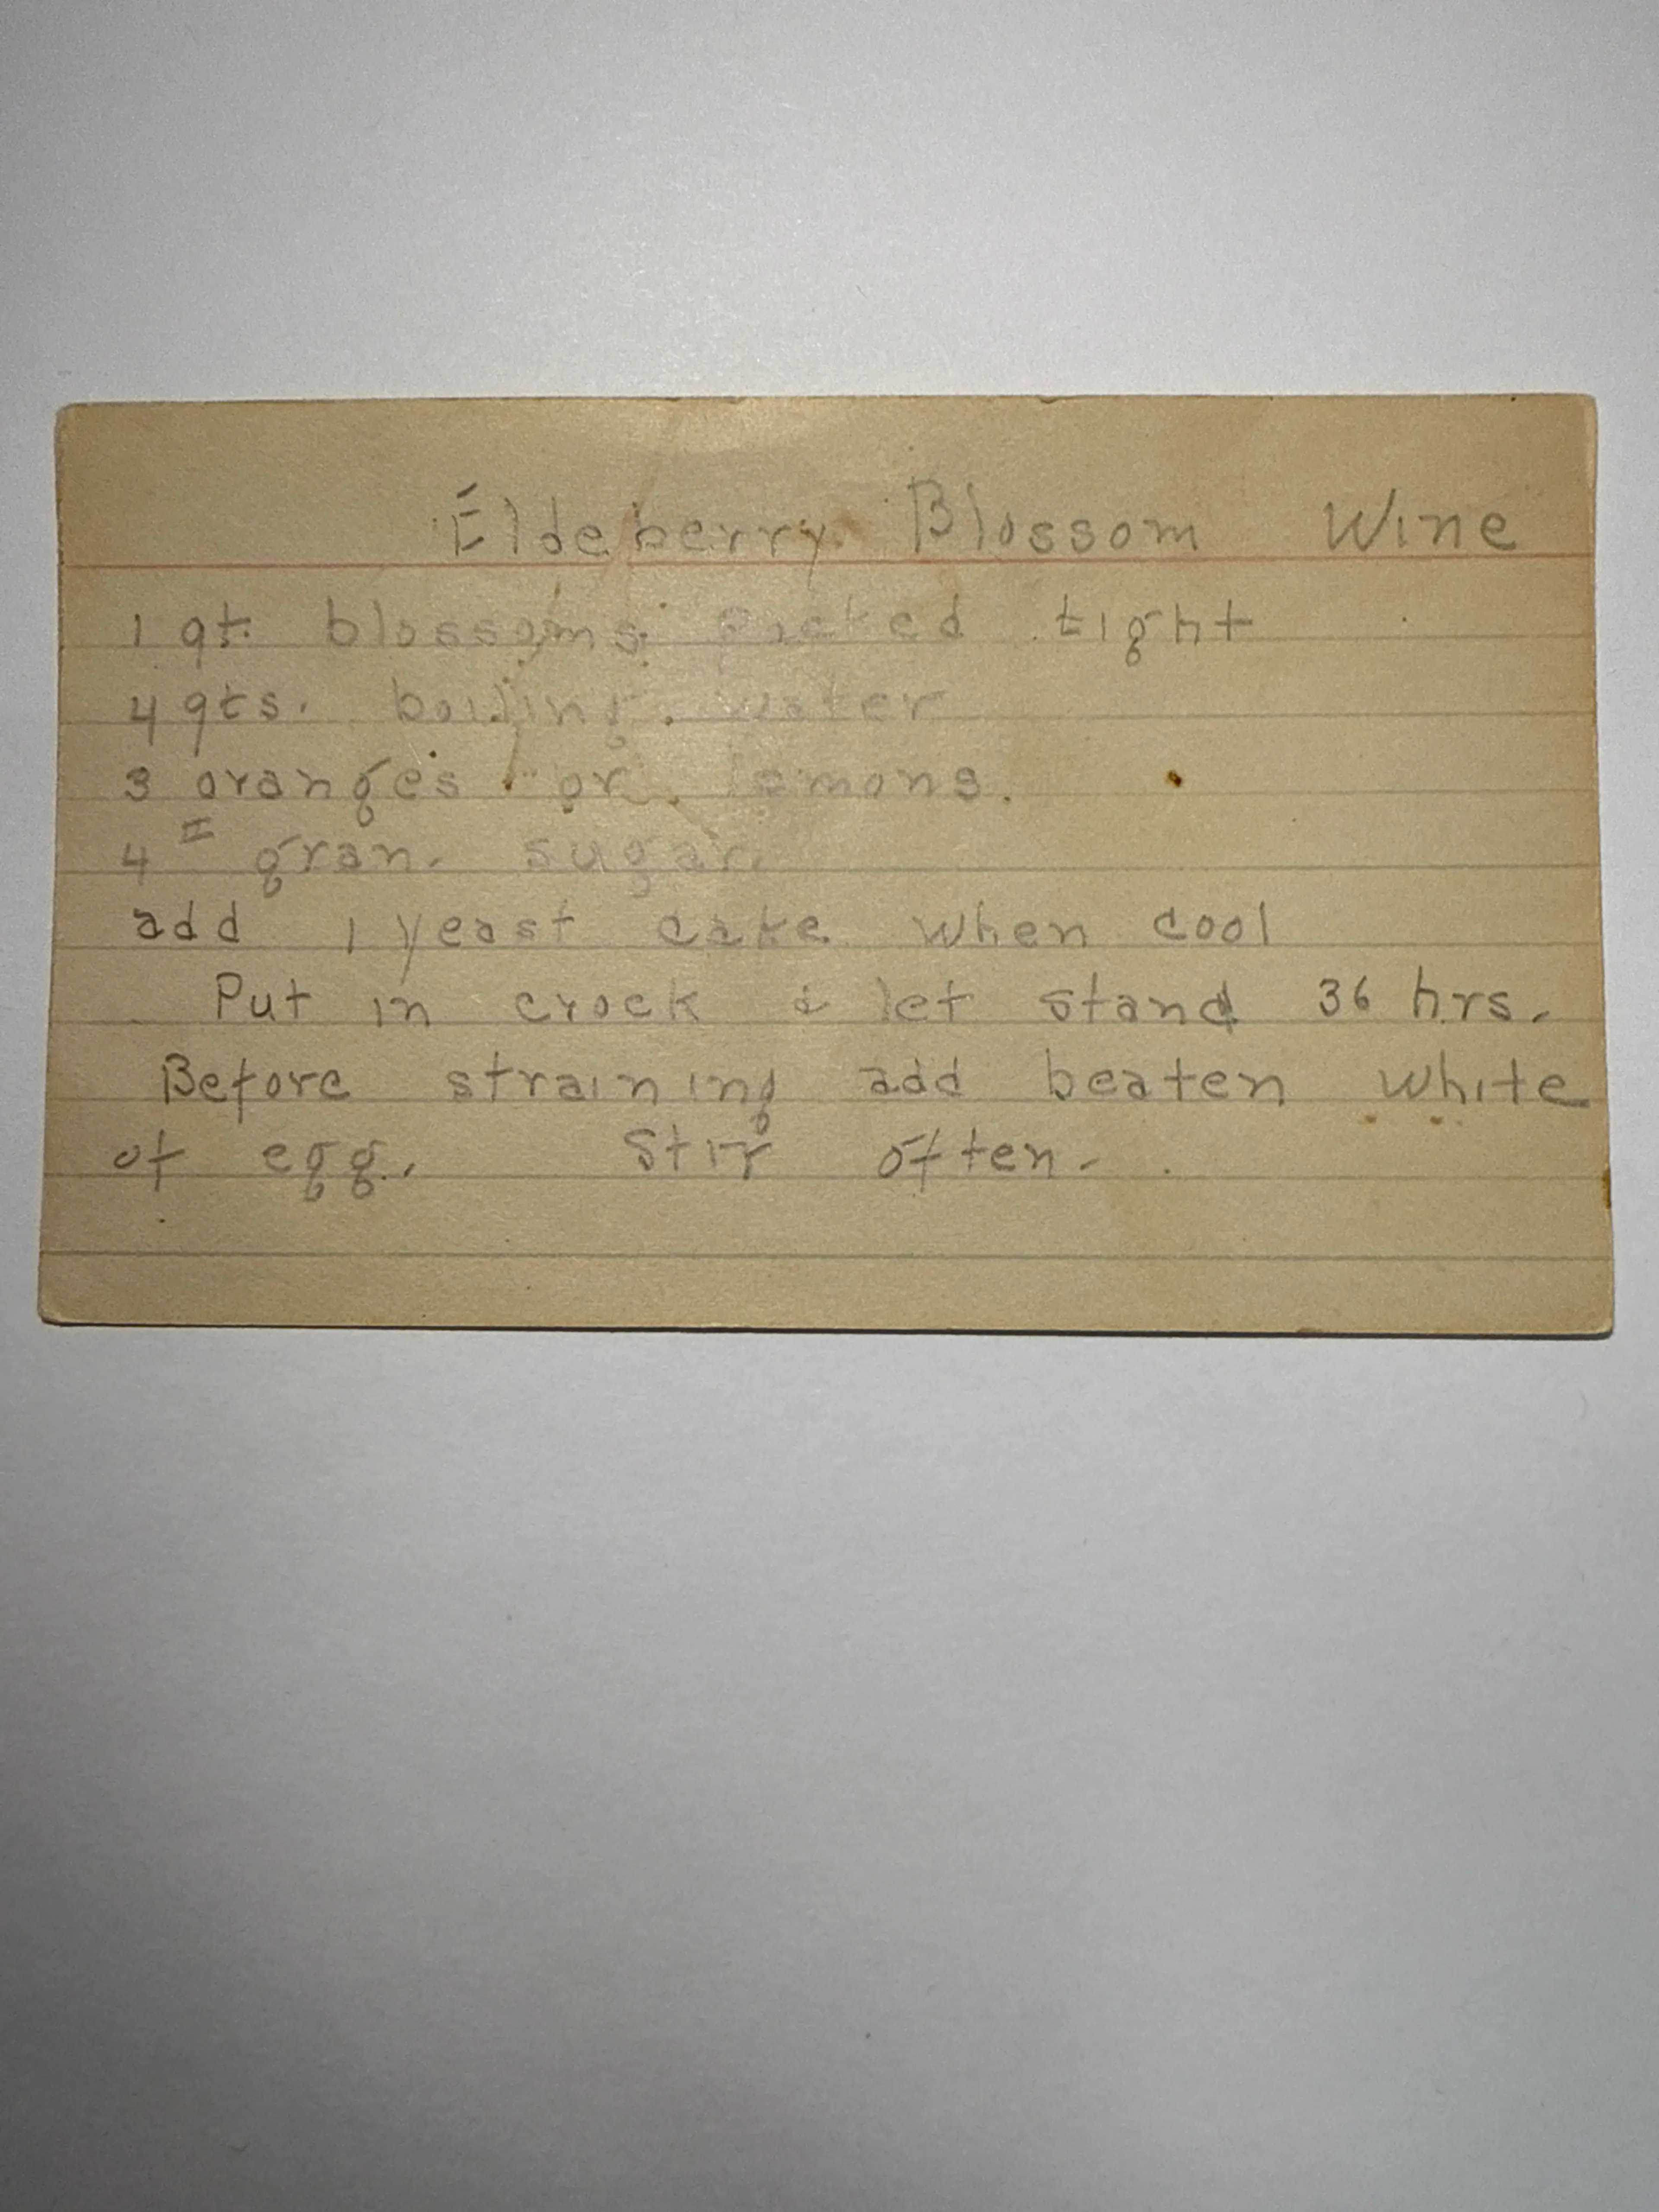 Eldeberry Blossom Wine
1 qt. blossoms packed tight
4 qts. boiling water
3 oranges or lemons.
4 # gran. sugar.
add 1 yeast cake when cool
Put in crock & let stand 36 hrs.
Before straining add beaten white
of egg. Stir often.